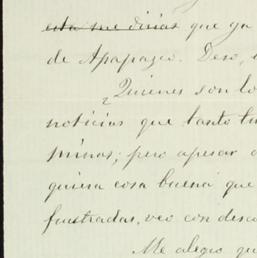 ~~esta me dirias~~ que ya
de Apapazco. Deso,
¿Quienes son lo
noticias que tanto tu
minas; pero apesar
quiera cosa buena que
frustradas, veo con desc
Me alegro qu